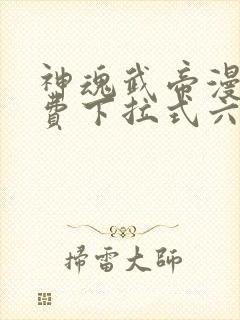 神魂武帝漫
費下拉式六
掃雷大師